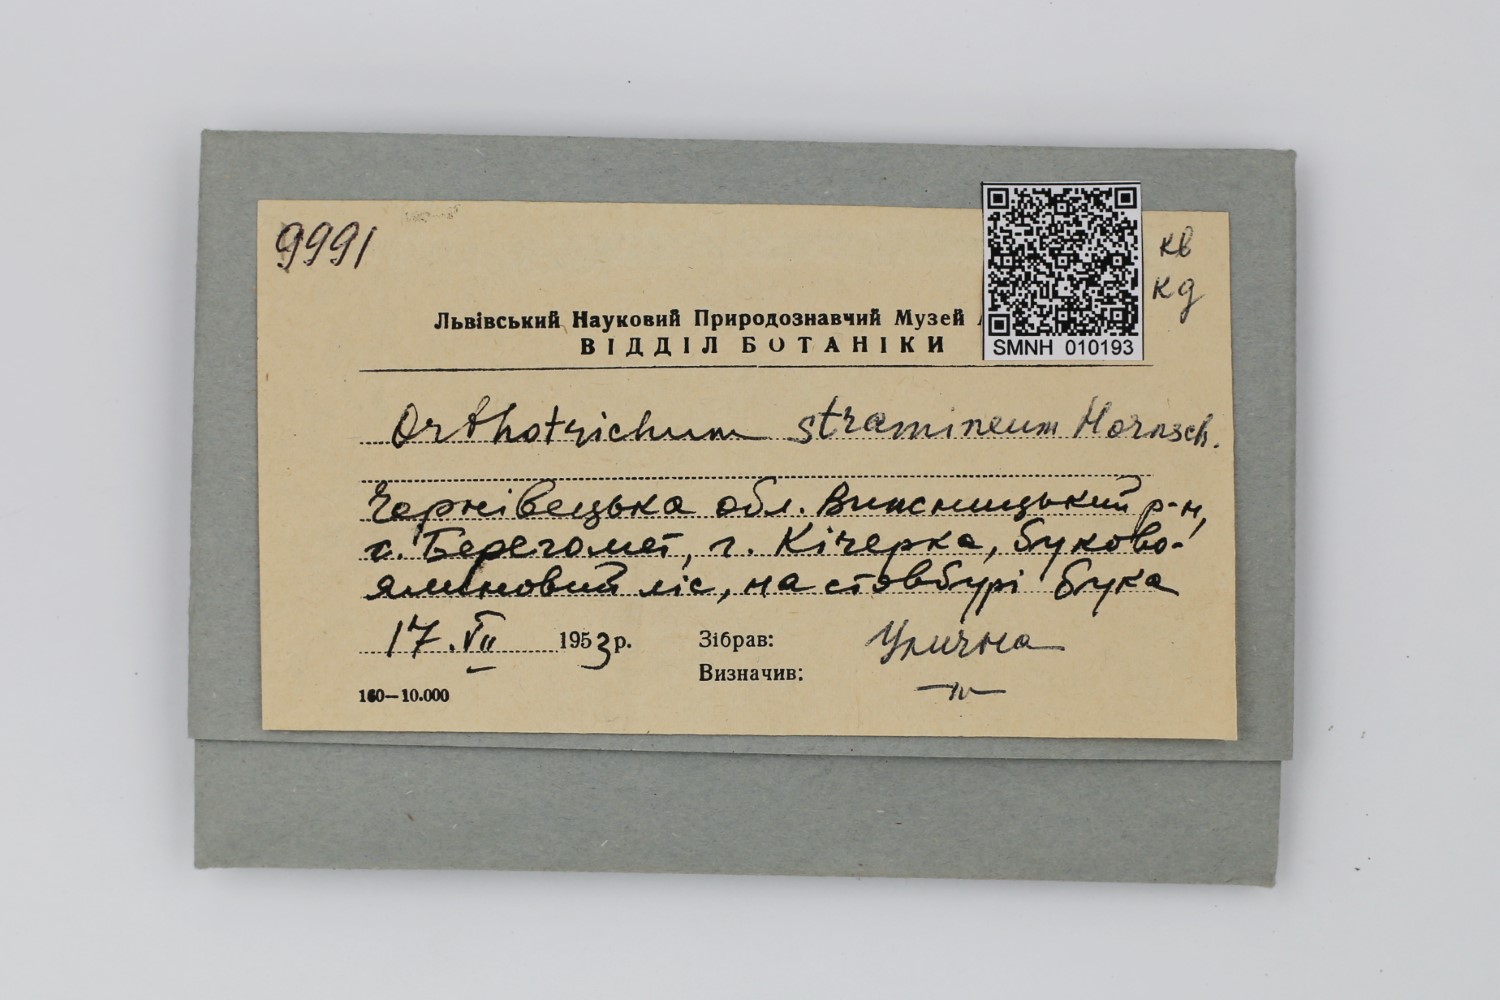 9991
кв
кд
Львівський Науковий Природознавчий Музей
ВІДДІЛ БОТАНІКИ
SMNH 010193
Orthotrichum stramineum Hornsch.
Чернівецька обл. Вижницький р-н,
с. Берегомет, г. Кічерка, буково-
ялиновий ліс, на стовбурі бука
17.VII 1953 р. Зібрав: Улична
Визначив: —"—
160—10.000